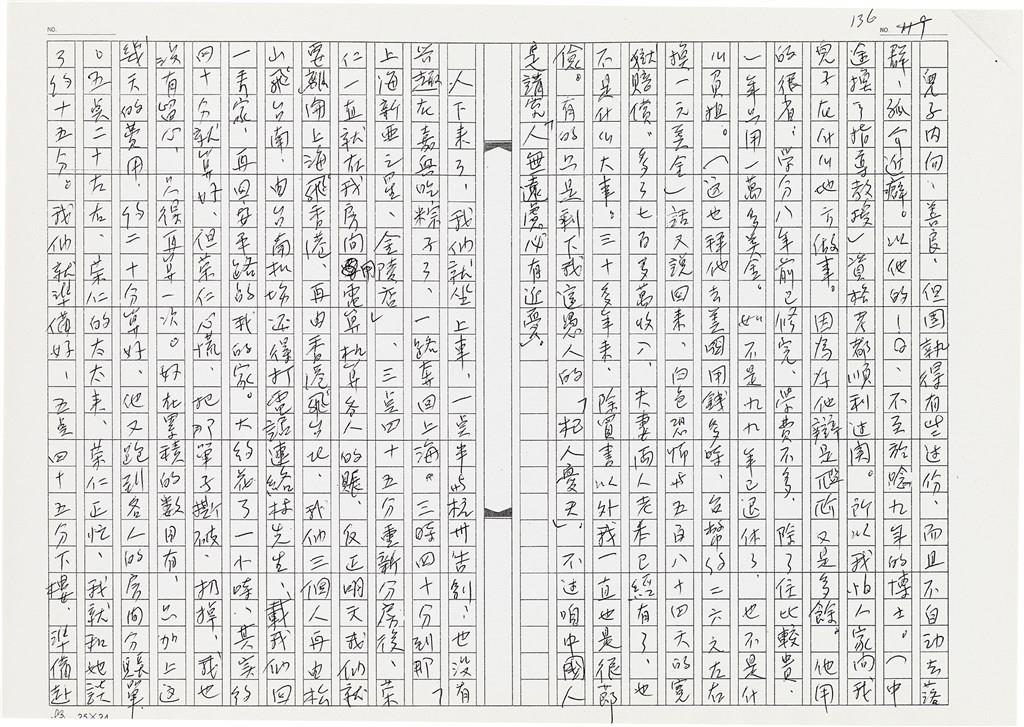 136
NO.
NO.
兒子內向、善良、但固執得有些过份、而且不自动去落
群、孤介近癖。以他的I.Q.不至於唸九年的博士。(中
途換了指導教授)資格考都順利过関。所以我怕人家问我
兒子在什么地方做事。因为为他辯是尷尬又是多餘。他用
的很省,学分八年前已修完、学费不多、除了住比較貴、
一年只用一萬多美金。如不是九九年已退休了、也不是什
么負担。(这也釋他去美國用錢多時、台幣約二六元左右
換一元美金)話又說回來、白色恐怖廿五百八十四天的冤
獄賠償。多了七百多萬收入、夫妻兩人老本已經有了、也
不是什么大事。三十多年來、除買書以外我一直也是很節
儉。有的只是剩下我這愚人的「杞人憂天」、不过咱中國人
是講究「人無遠慮必有近憂」。
人下来了、我們就坐上車、一点半与杭州告别、也沒有
兴趣在嘉興吃粽子了、一路奔回上海。三時四十分到那「
上海新亜之星、金陵店」、三点四十五分重新分房後、荣
仁一直就在我房间用電算机算各人的賬。反正明天我们就
要離開上海飛香港、再由香港飛台北、我们三個人再由松
山飛台南、由台南机場还得打電話連絡林先生、載我们回
一秀家、再回安平路的我的家。大約花了一小時、其实約
四十分就算好、但荣仁心慌、把那單子撕破、扔掉、我也
沒有留心、只得再算一次。好在累積的數目有、只加上这
幾天的费用、約二十分算好、他又跑到各人的房间分賬單、
。五点二十左右、荣仁的太太来、荣仁正忙、我就和她談
了約十五分。我们就準備好、五点四十五分下樓、準備赴
25×24